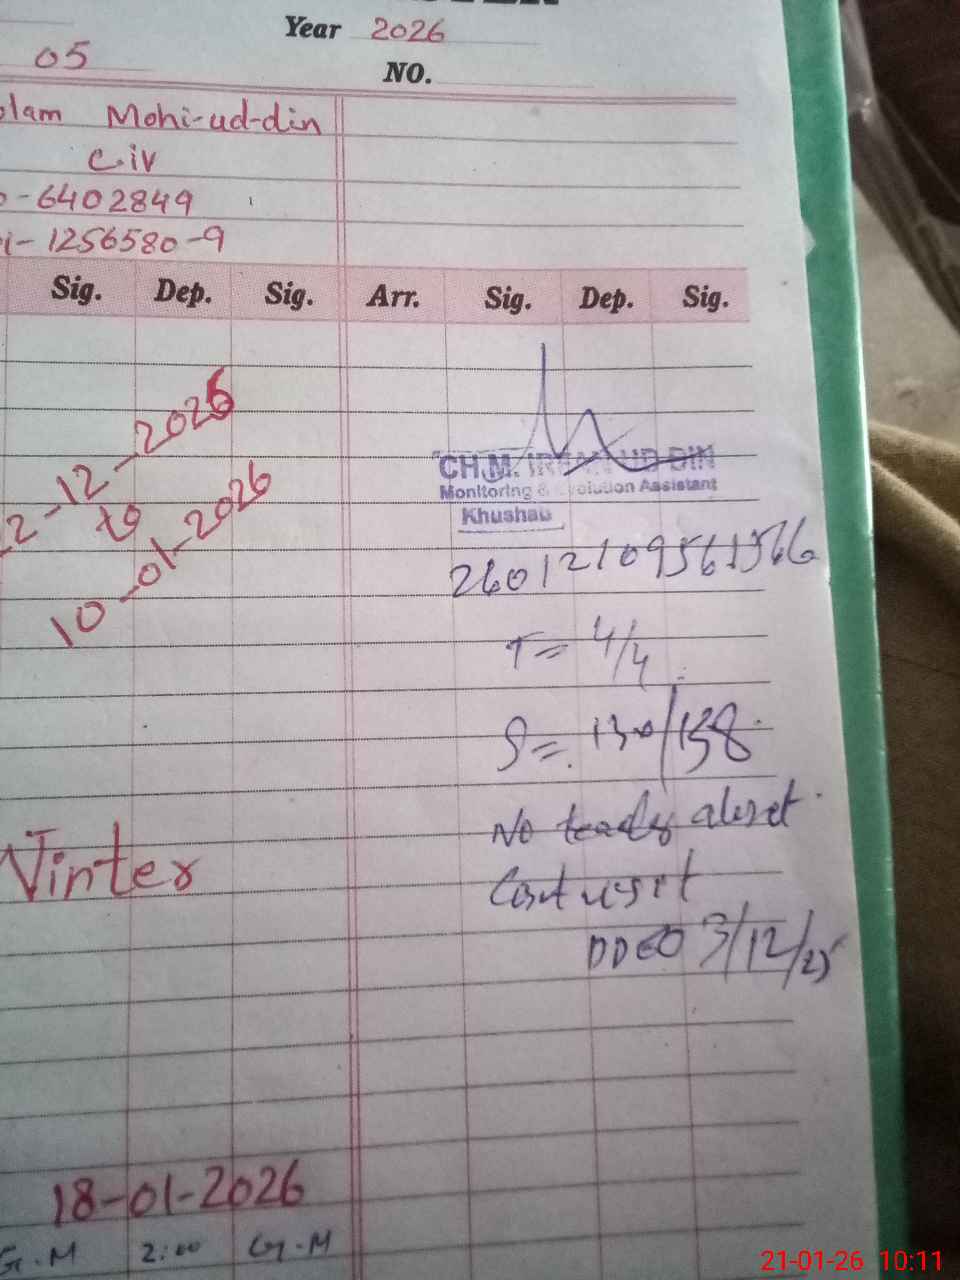 Year 2026
05
NO.
Mohi-ud-din
Civ
-6402849
i-1256580-9
Sig. Dep. Sig. Arr. Sig. Dep. Sig.
2-12-2026
to
10-01-2026
CH.M. IRFAN UD DIN
Monitoring & Evolution Assistant
Khushab
T= 4/4
S= 130/138
No alert
DDEO 3/12/25
18-01-2026
G.M 2:00 G.M
21-01-26 10:11